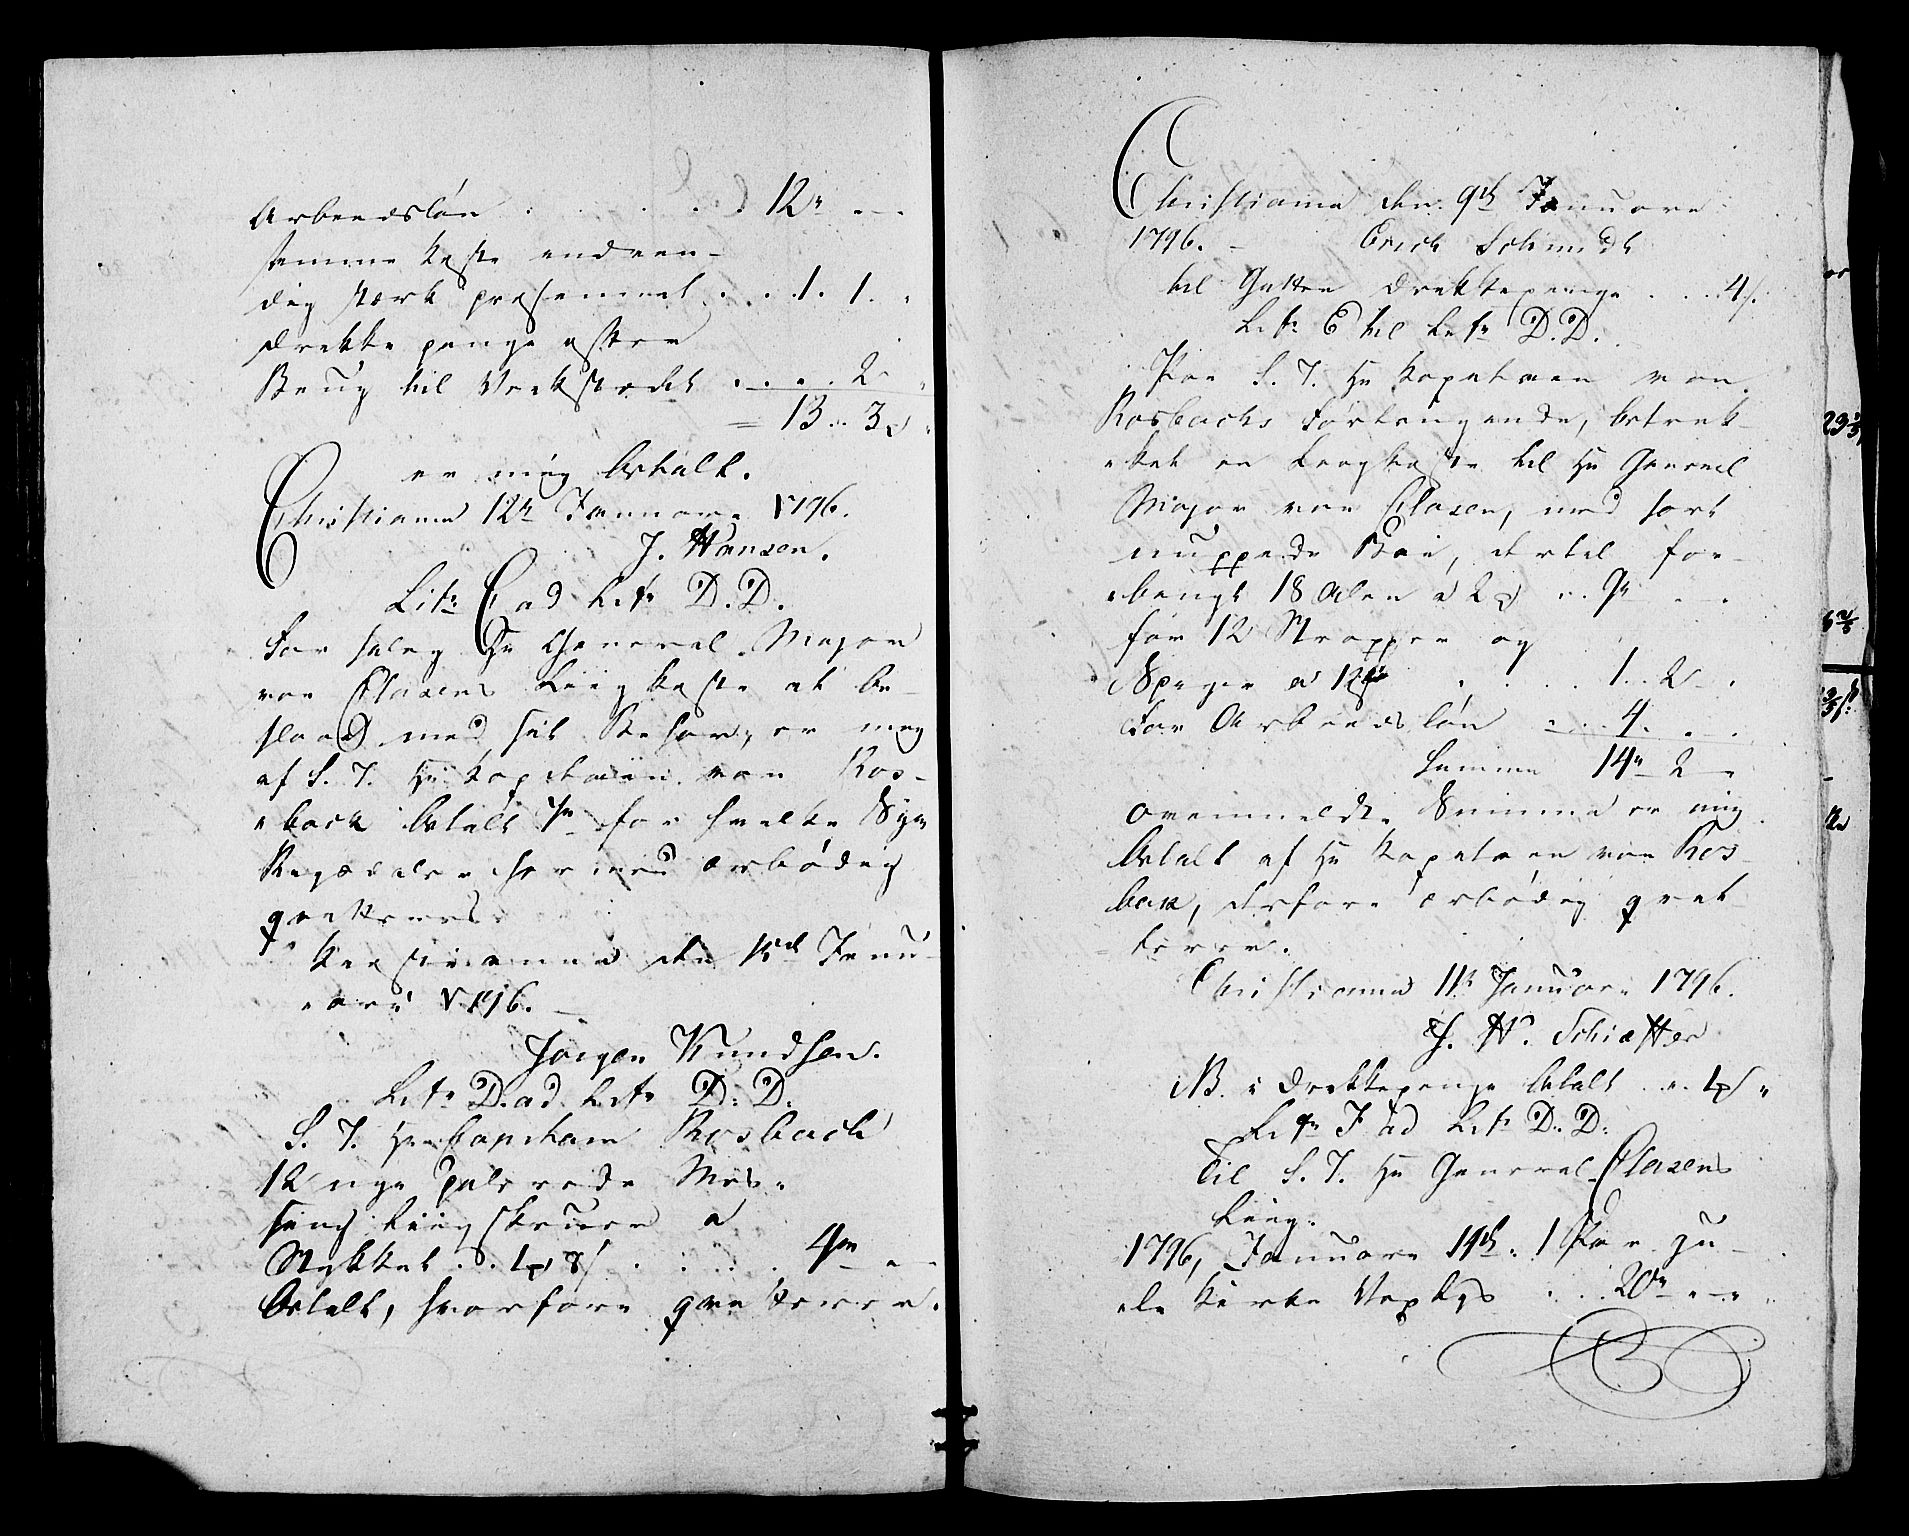 Arbeedsløn . . . . 12„ — 
samme Kiste enven-
dig stærk presenneret . . . 1. 1. „
Drekke penge efter
Brug til Verkstedet . . . . 2 „
= 13 .. 3 „
er mig betalt.
Christiania 12te Januari 1796.
J. Hansen.
Litr C ad Litr D.D.
For salig Hr General Major
von Clasens Liigkiste at be-
slaae med sit Behør, er mig
af S. T. Hr Kapitain von Ros-
bach betalt 7r for hvilke Syv
Rigsdaler hermed ærbødig
qvitteres.
Kristiania den 12te Janu-
ari 1796.
Jørgen Knudsen.
Litr D. ad Litr D. D.
S. T. Hr Capitain Rosbach
12 nye Pulerede Mes-
sing Liigskruer a
Stykket . . 8s . . . . 4r —
betalt, hvorfore qvitterer.
Christiania den 9de Januari
1796. — Erich Schmidt
til Gutten Drekkepenge . . . 4s.
Litr E til Litr D.D.
Paa S. T. Hr Kapitain von
Rosbachs Forlangende, betrek-
ket en Liigkiste til Hr General
Major von Clasen, med sort
nuppede Boi, dertil for-
brugt 18 Alen a 2 .. 9r — —
for 12 Stropper og
Spiger a 12s . . . . 1 .. 2 — .
For Arbeedsløn . . . 4. — .
Summa 14r 2 —
Ovenmeldte Summa er mig
betalt af Hr Kapitain von Ros-
bak, derfore ærbødig qvit-
terer.
Christiania 11te Januari 1796.
J. H. Schiøtter
NB. i Drekkepenge betalt . . „
Litr F ad Litr D. D.
Til S. T. Hr General Clasens
Liig.
1796, Januari 14de. 1 Par gu-
le Kirke Voxlys . . . 20r — „